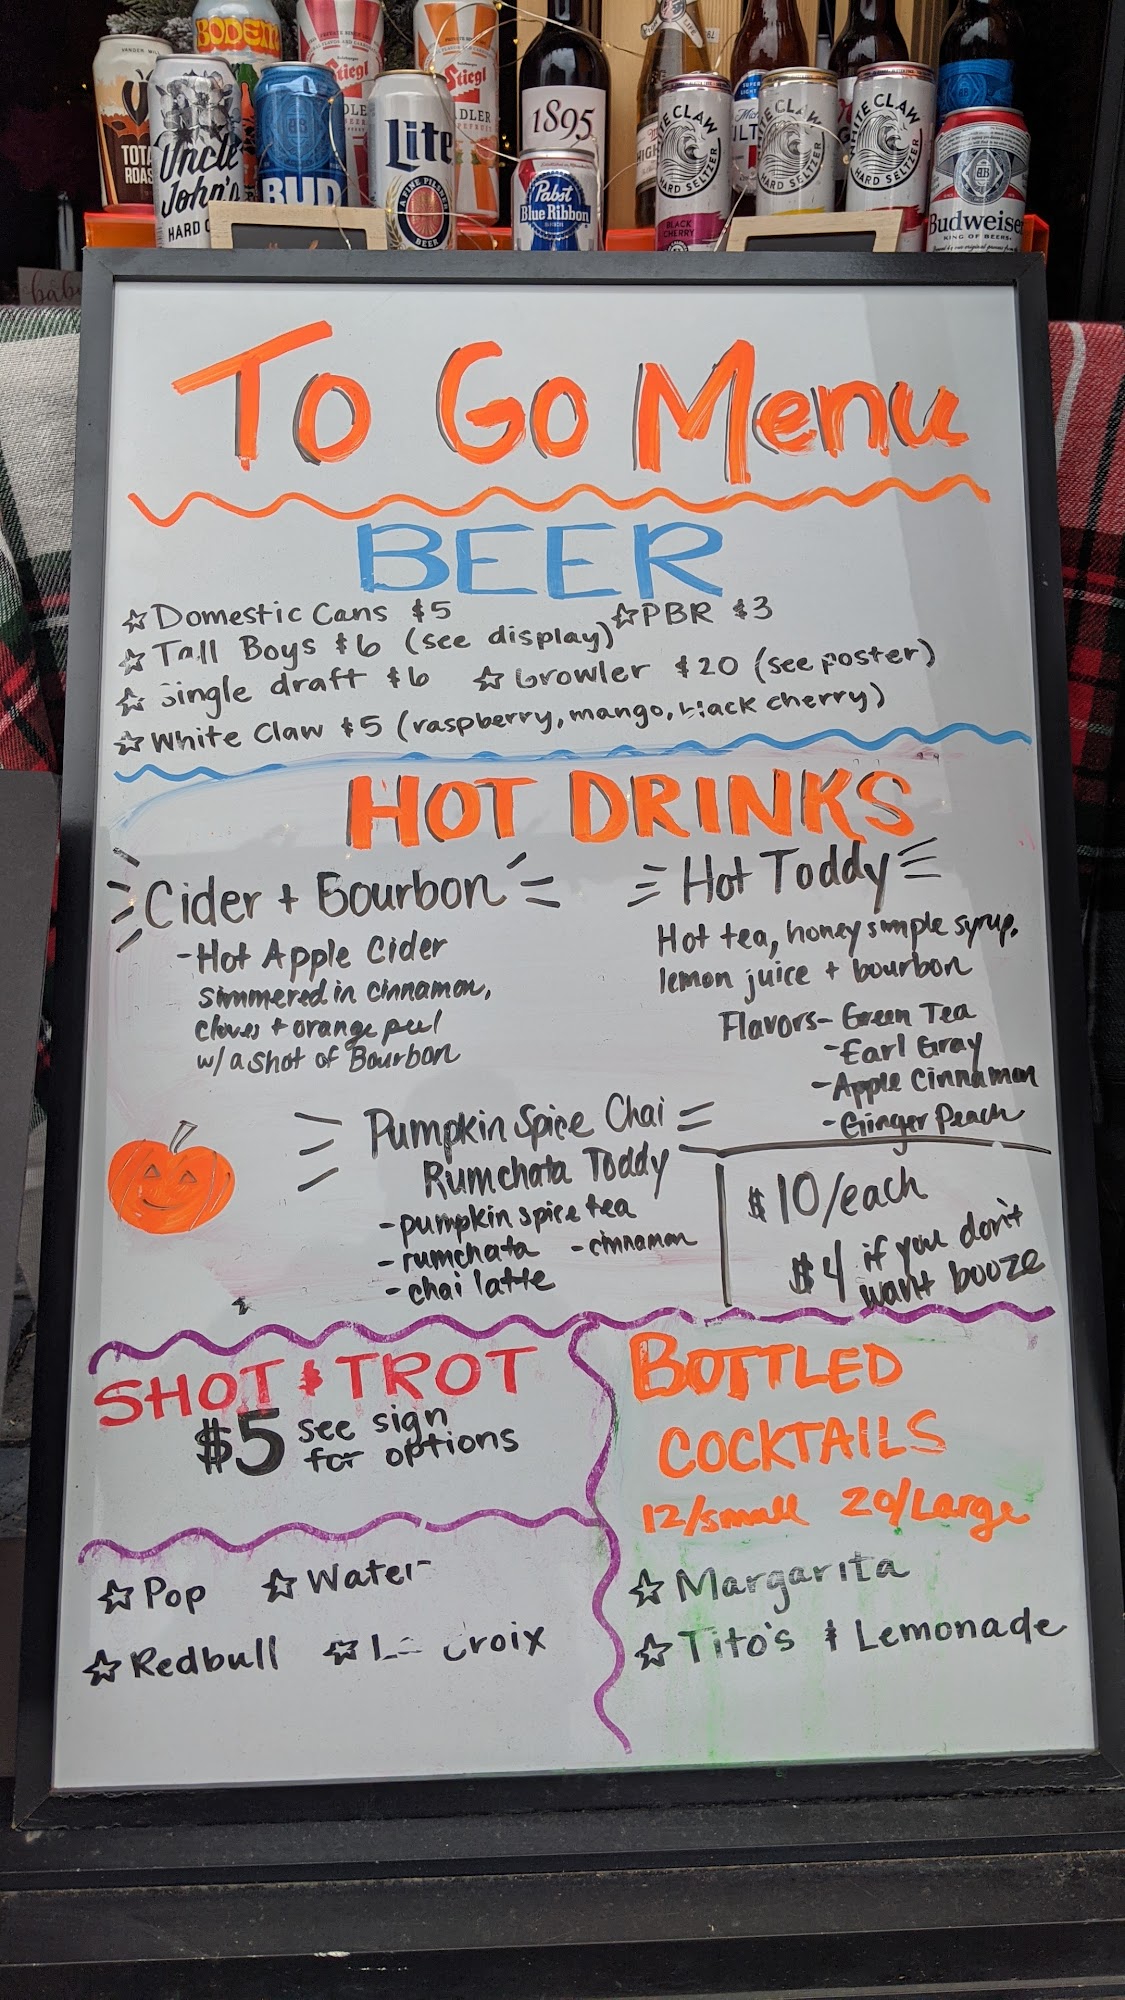 VANDER MILL
TOTA
ROAS
Uncle
John's
HARD C
BODEM
BUD
Stiegl
Stiegl
DLE
DLER
Lite
A FINE PILSNER
BEER
1895
Pabst
Blue Ribbon
HIGH
LIFE
WHITE CLAW
HARD SELTZER
BLACK
CHERRY
ITE CLAW
HARD SELTZER
ITE CLAW
HARD SELTZER
Budweiser
KING OF BEERS
To Go Menu
BEER
☆ Domestic Cans $5 ☆ PBR $3
☆ Tall Boys $6 (see display)
☆ single draft $6 ☆ Growler $20 (see poster)
☆ White Claw $5 (raspberry, mango, black cherry)
HOT DRINKS
Cider + Bourbon
- Hot Apple Cider
simmered in cinnamon,
cloves + orange peel
w/ a shot of Bourbon
Hot Toddy
Hot tea, honey simple syrup,
lemon juice + bourbon
Flavors - Green Tea
- Earl Gray
- Apple Cinnamon
- Ginger Peach
Pumpkin Spice Chai
Rumchata Toddy
- pumpkin spice tea
- rumchata - cinnamon
- chai latte
$10/each
$4 if you don't
want booze
SHOT & TROT
$5 see sign
for options
☆ Pop ☆ Water
☆ Redbull ☆ La Croix
BOTTLED
COCKTAILS
12/small 20/Large
☆ Margarita
☆ Tito's & Lemonade